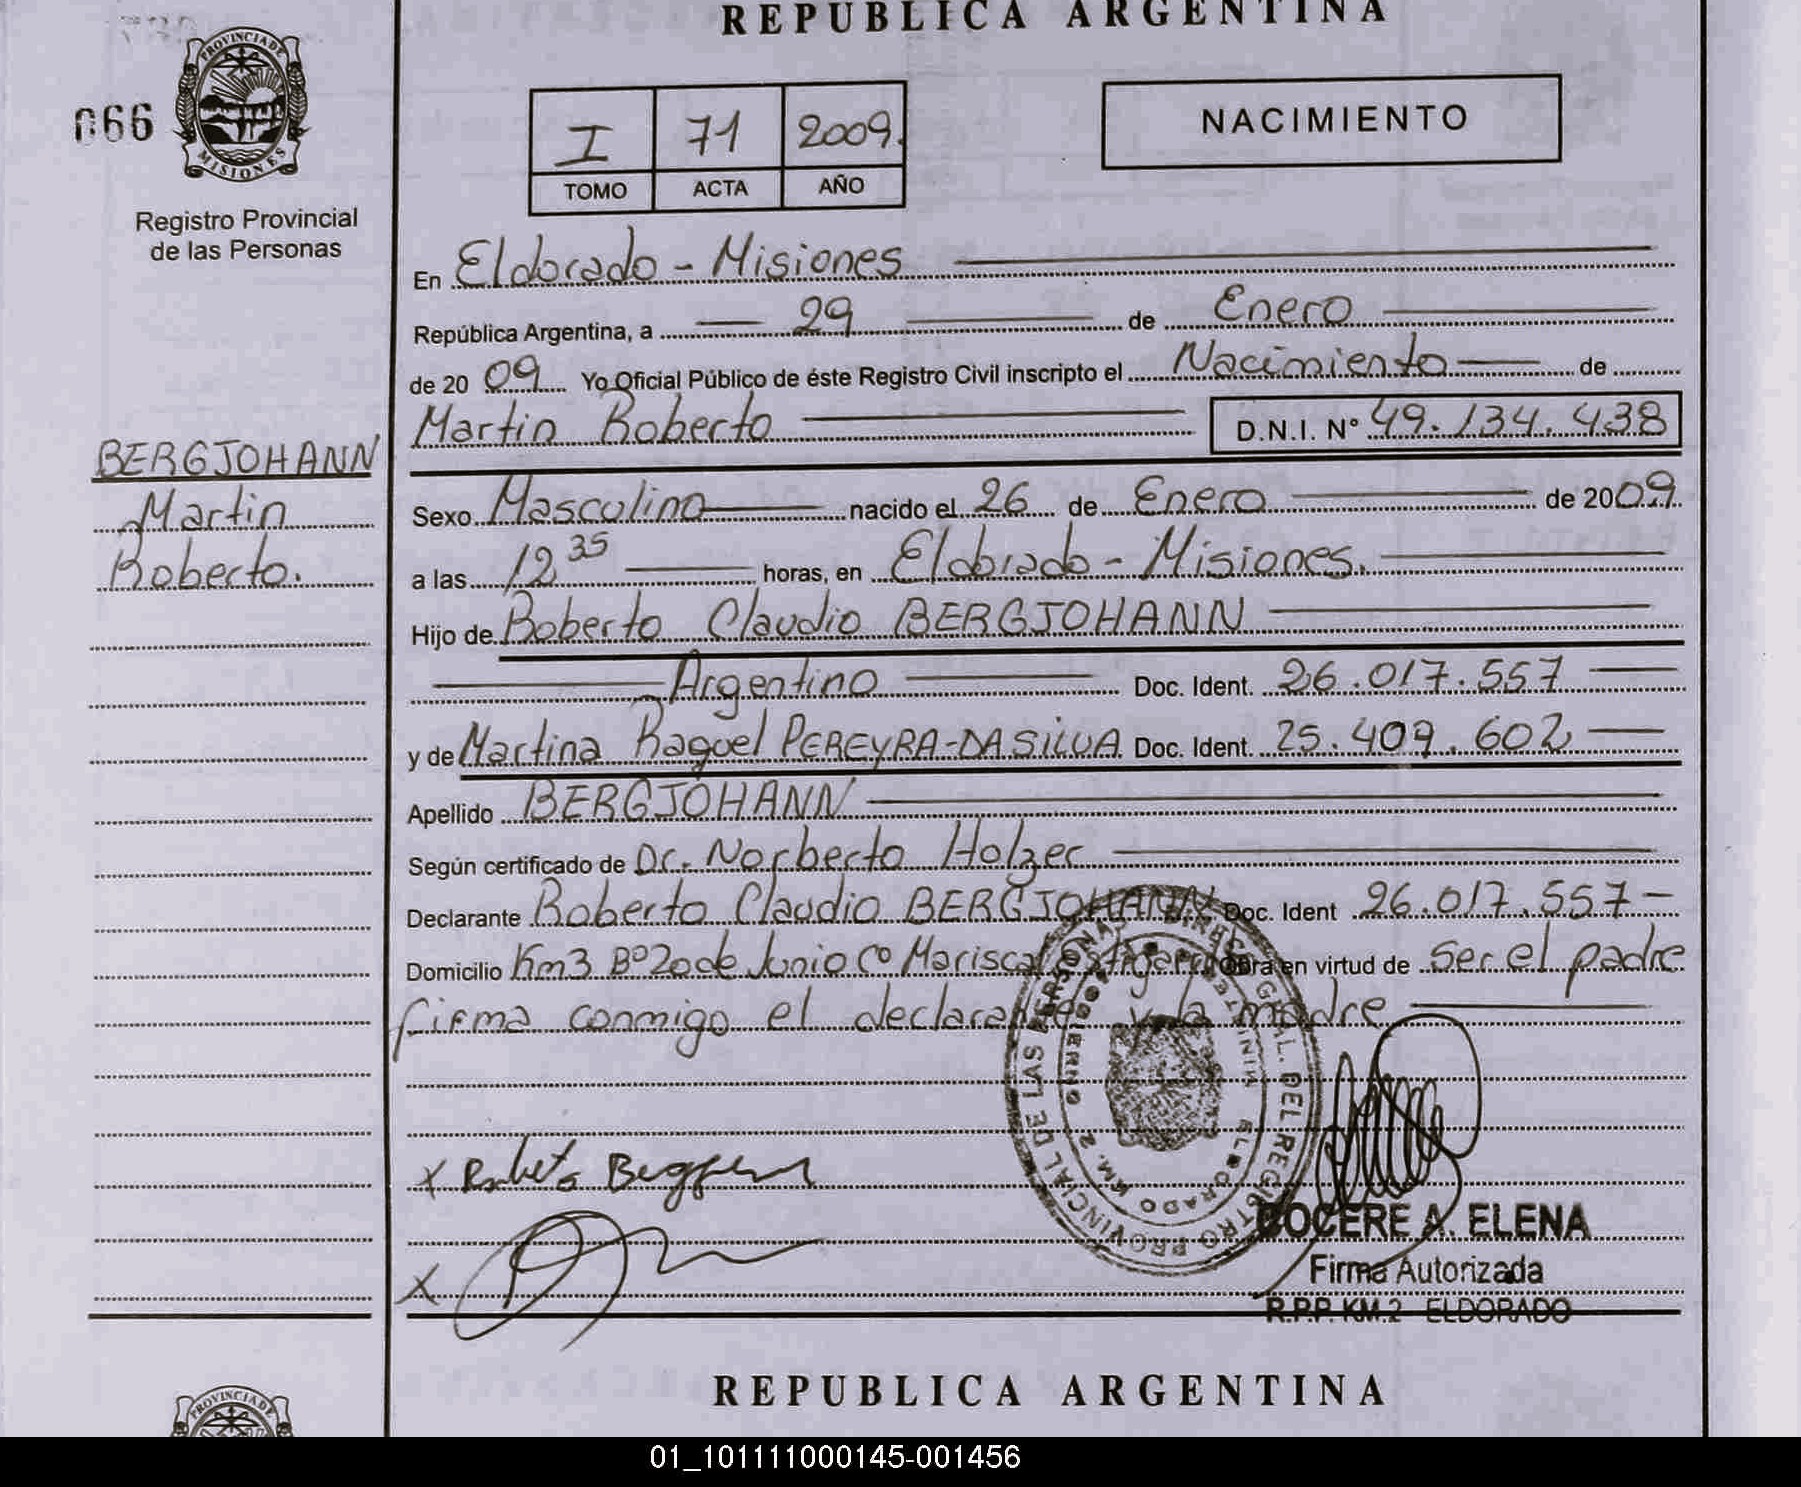 REPUBLICA ARGENTINA
066
PROVINCIA DE
MISIONES
Registro Provincial
de las Personas
I 71 2009.
TOMO ACTA AÑO
NACIMIENTO
En Eldorado - Misiones
República Argentina, a 29 de Enero
de 2009 Yo Oficial Público de éste Registro Civil inscripto el Nacimiento de
Martin Roberto D.N.I. Nº 49.134.438
BERGJOHANN
Martin
Roberto.
Sexo Masculino nacido el 26 de Enero de 2009.
a las 12 35 horas, en Eldorado - Misiones.
Hijo de Roberto Claudio BERGJOHANN
Argentino Doc. Ident. 26.017.557
y de Martina Raquel PEREYRA-DASILVA Doc. Ident. 25.409.602
Apellido BERGJOHANN
Según certificado de Dr. Norberto Holzer
Declarante Roberto Claudio BERGJOHANN Doc. Ident 26.017.557-
Domicilio Km3 Bº20de Junio Cº Mariscal Obra en virtud de ser el padre
firma conmigo el declarante y la madre
DIREC. GRAL. DEL REGISTRO PROVINCIAL DE LAS PERSONAS
ELDORADO KM. 2
x Roberto
x
DOCERE A. ELENA
Firma Autorizada
R.P.P. KM.2 ELDORADO
REPUBLICA ARGENTINA
PROVINCIA DE
01_101111000145-001456